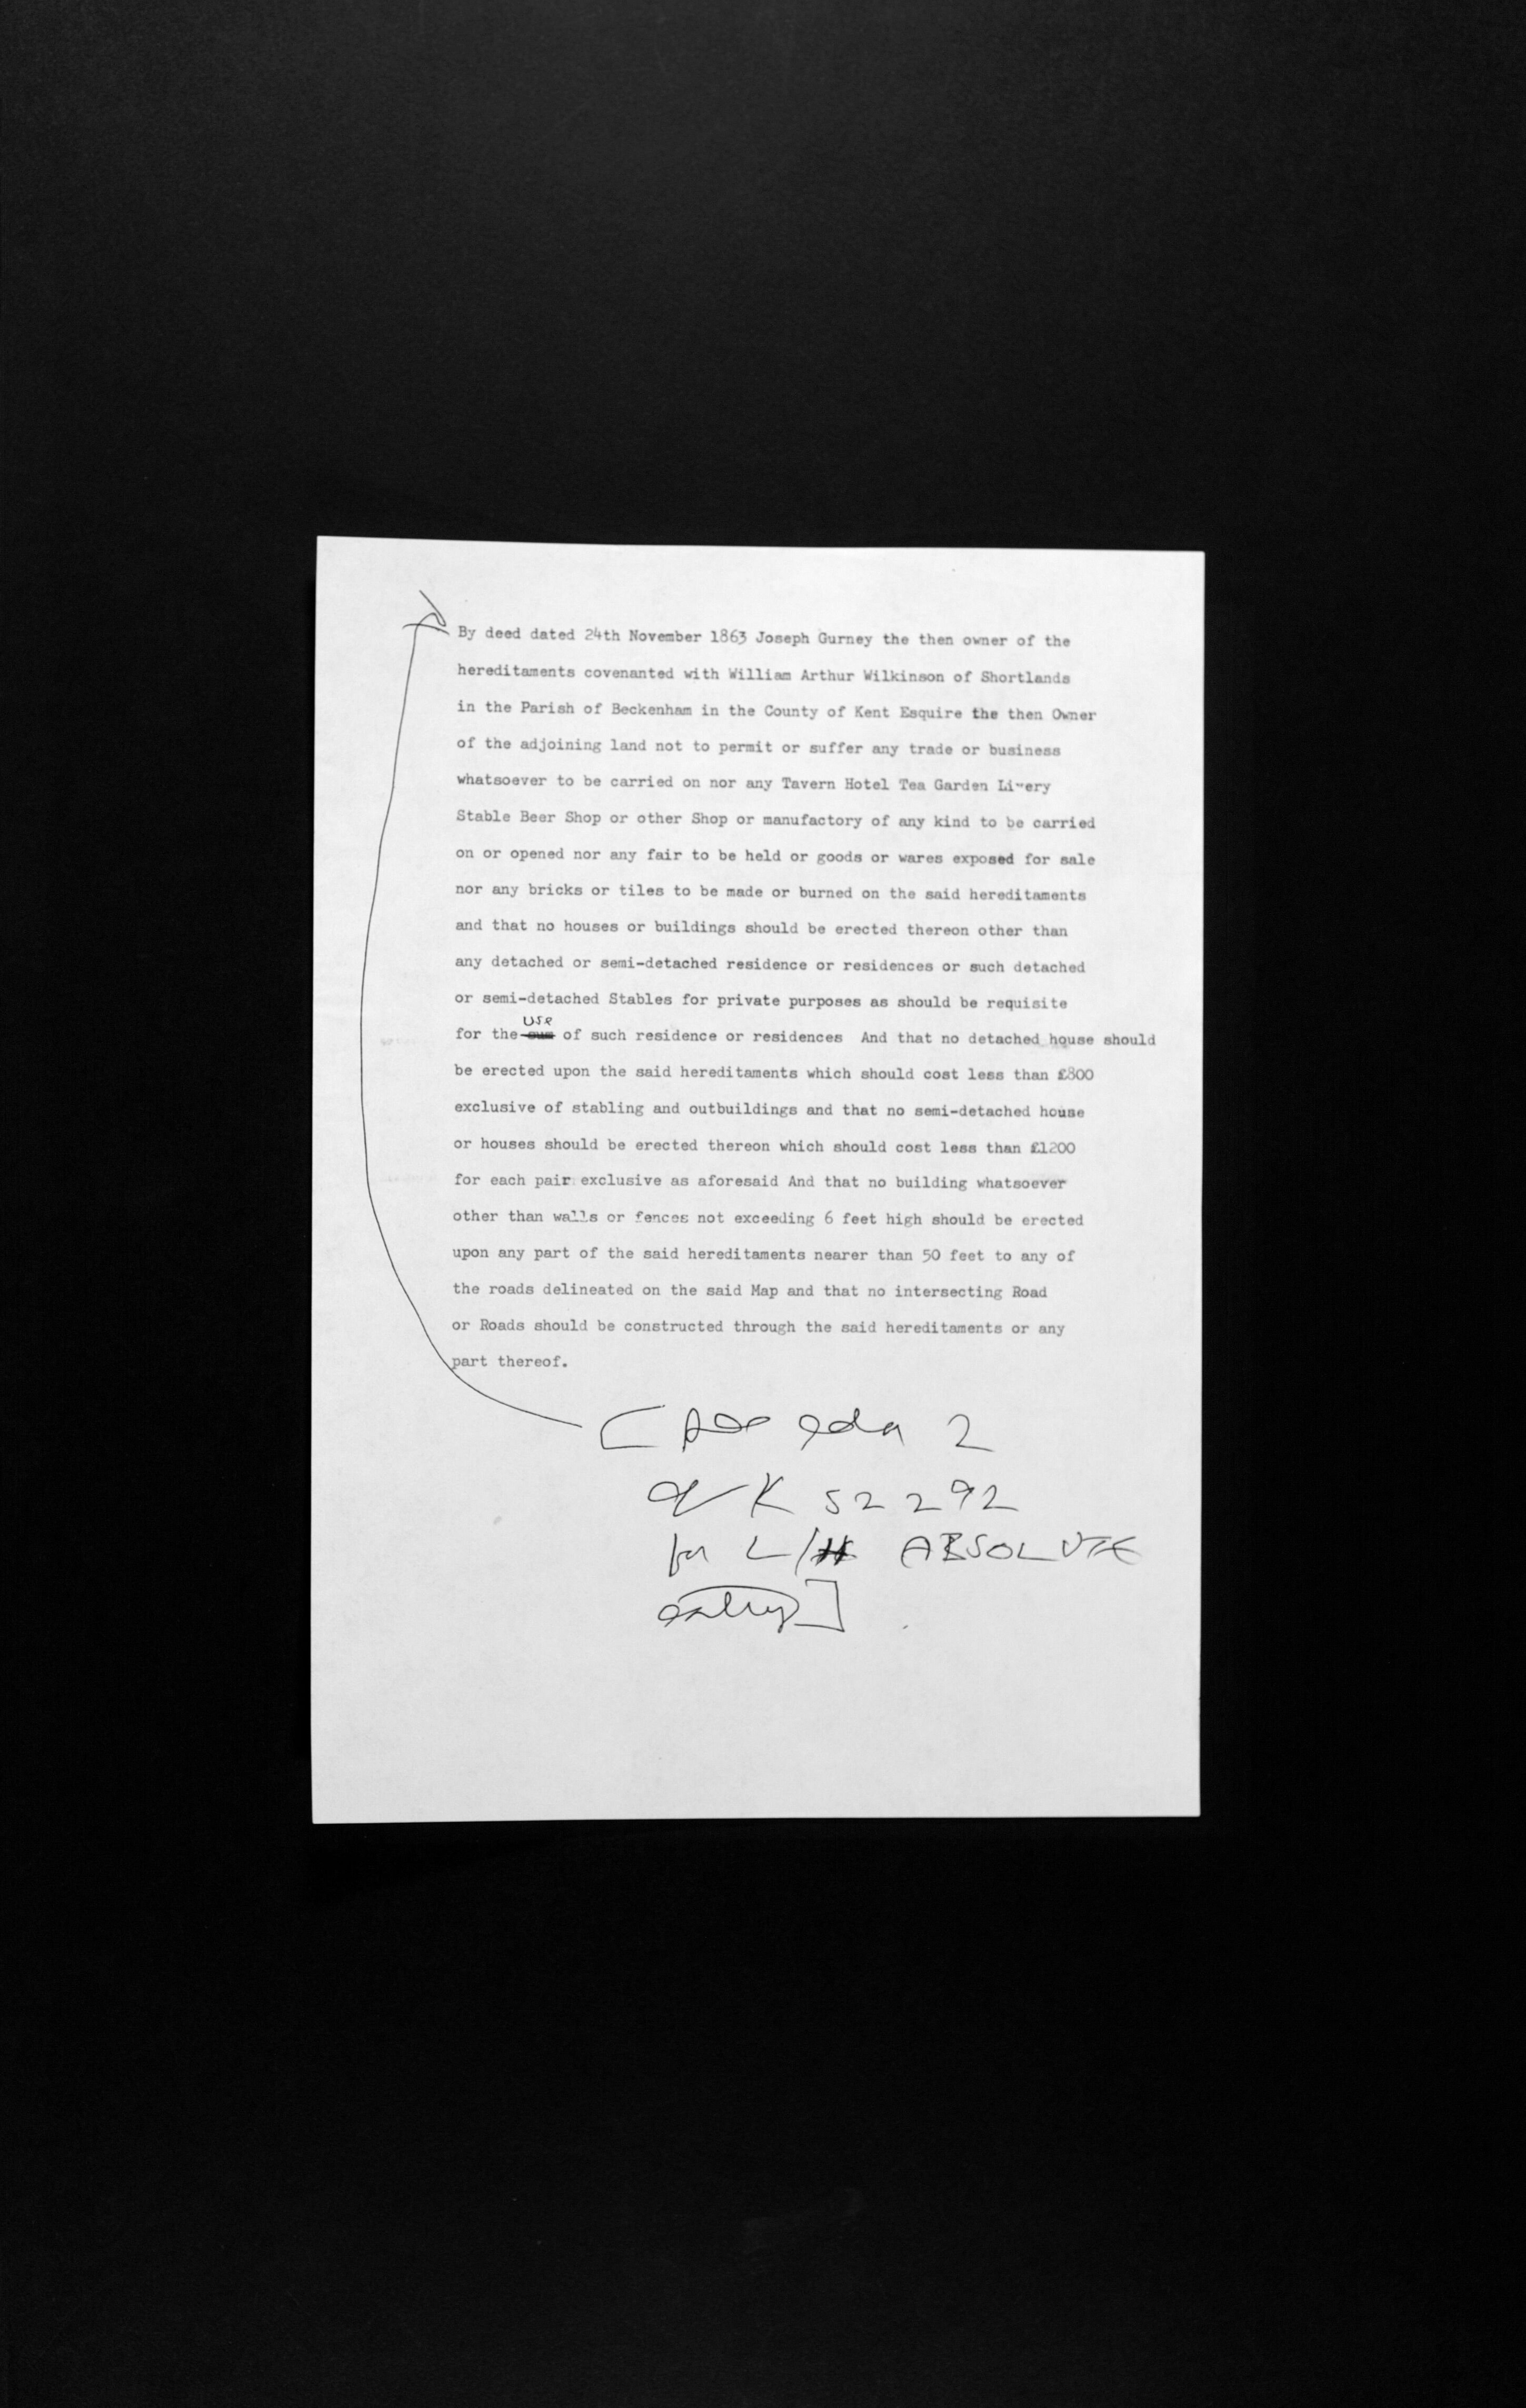 By deed dated 24th November 1863 Joseph Gurney the then owner of the
hereditaments covenanted with William Arthur Wilkinson of Shortlands
in the Parish of Beckenham in the County of Kent Esquire the then Owner
of the adjoining land not to permit or suffer any trade or business
whatsoever to be carried on nor any Tavern Hotel Tea Garden Livery
Stable Beer Shop or other Shop or manufactory of any kind to be carried
on or opened nor any fair to be held or goods or wares exposed for sale
nor any bricks or tiles to be made or burned on the said hereditaments
and that no houses or buildings should be erected thereon other than
any detached or semi-detached residence or residences or such detached
or semi-detached Stables for private purposes as should be requisite
use
for the of such residence or residences And that no detached house should
be erected upon the said hereditaments which should cost less than £800
exclusive of stabling and outbuildings and that no semi-detached house
or houses should be erected thereon which should cost less than £1200
for each pair exclusive as aforesaid And that no building whatsoever
other than walls or fences not exceeding 6 feet high should be erected
upon any part of the said hereditaments nearer than 50 feet to any of
the roads delineated on the said Map and that no intersecting Road
or Roads should be constructed through the said hereditaments or any
part thereof.
[ 2
K 52292
for L/H ABSOLUTE
entry]